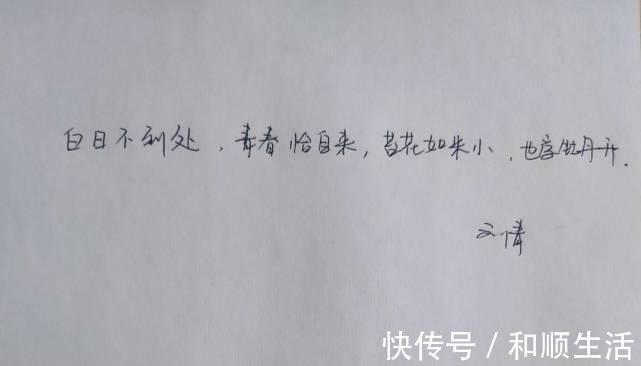 白日不到处，青春恰自来，苔花如米小，也学牡丹开.
情
快传号 / 和顺生活